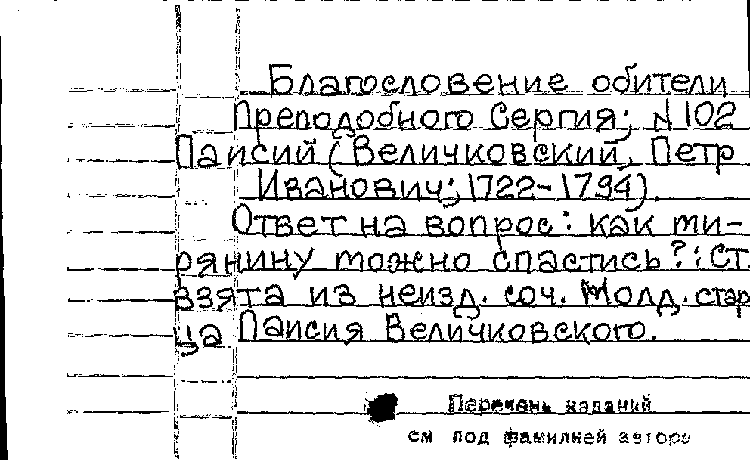 Благословение обители
Преподобного Сергия; N 102
Паисий (Величковский, Петр
Иванович; 1722-1794).
Ответ на вопрос: как ми-
рянину можно спастись?: Ст.
взята из неизд. соч. Молд. стар
ца Паисия Величковского.
Перечень изданий
см под фамилией автора